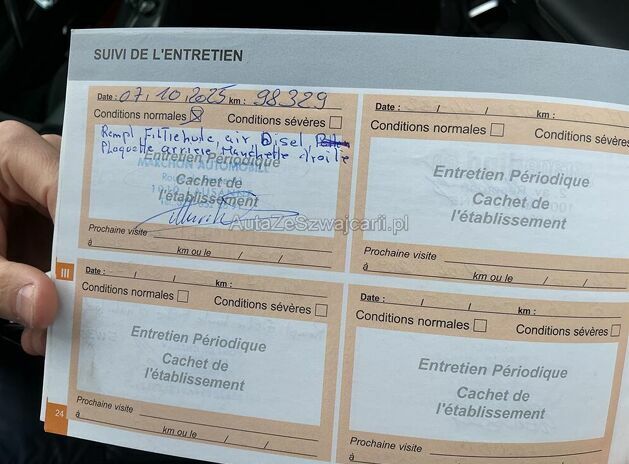 SUIVI DE L'ENTRETIEN
Date : 07, 10, 2025 km : 98329
Conditions normales Conditions sévères
Rempl Filtre hule air, Disel,
Plaquette arriere, Manchette droite
Entretien Périodique
MARCHON AUTOMOBILE
Cachet de
l'établissement
Prochaine visite
à km ou le / /
Date : / / km :
Conditions normales Conditions sévères
Entretien Périodique
Cachet de
l'établissement
Prochaine visite
à km ou le / /
AutaZeSzwajcarii.pl
III
Date : / / km :
Conditions normales Conditions sévères
Entretien Périodique
Cachet de
l'établissement
Prochaine visite
à km ou le / /
Date : / / km :
Conditions normales Conditions sévères
Entretien Périodique
Cachet de
l'établissement
Prochaine visite
à km ou le / /
24